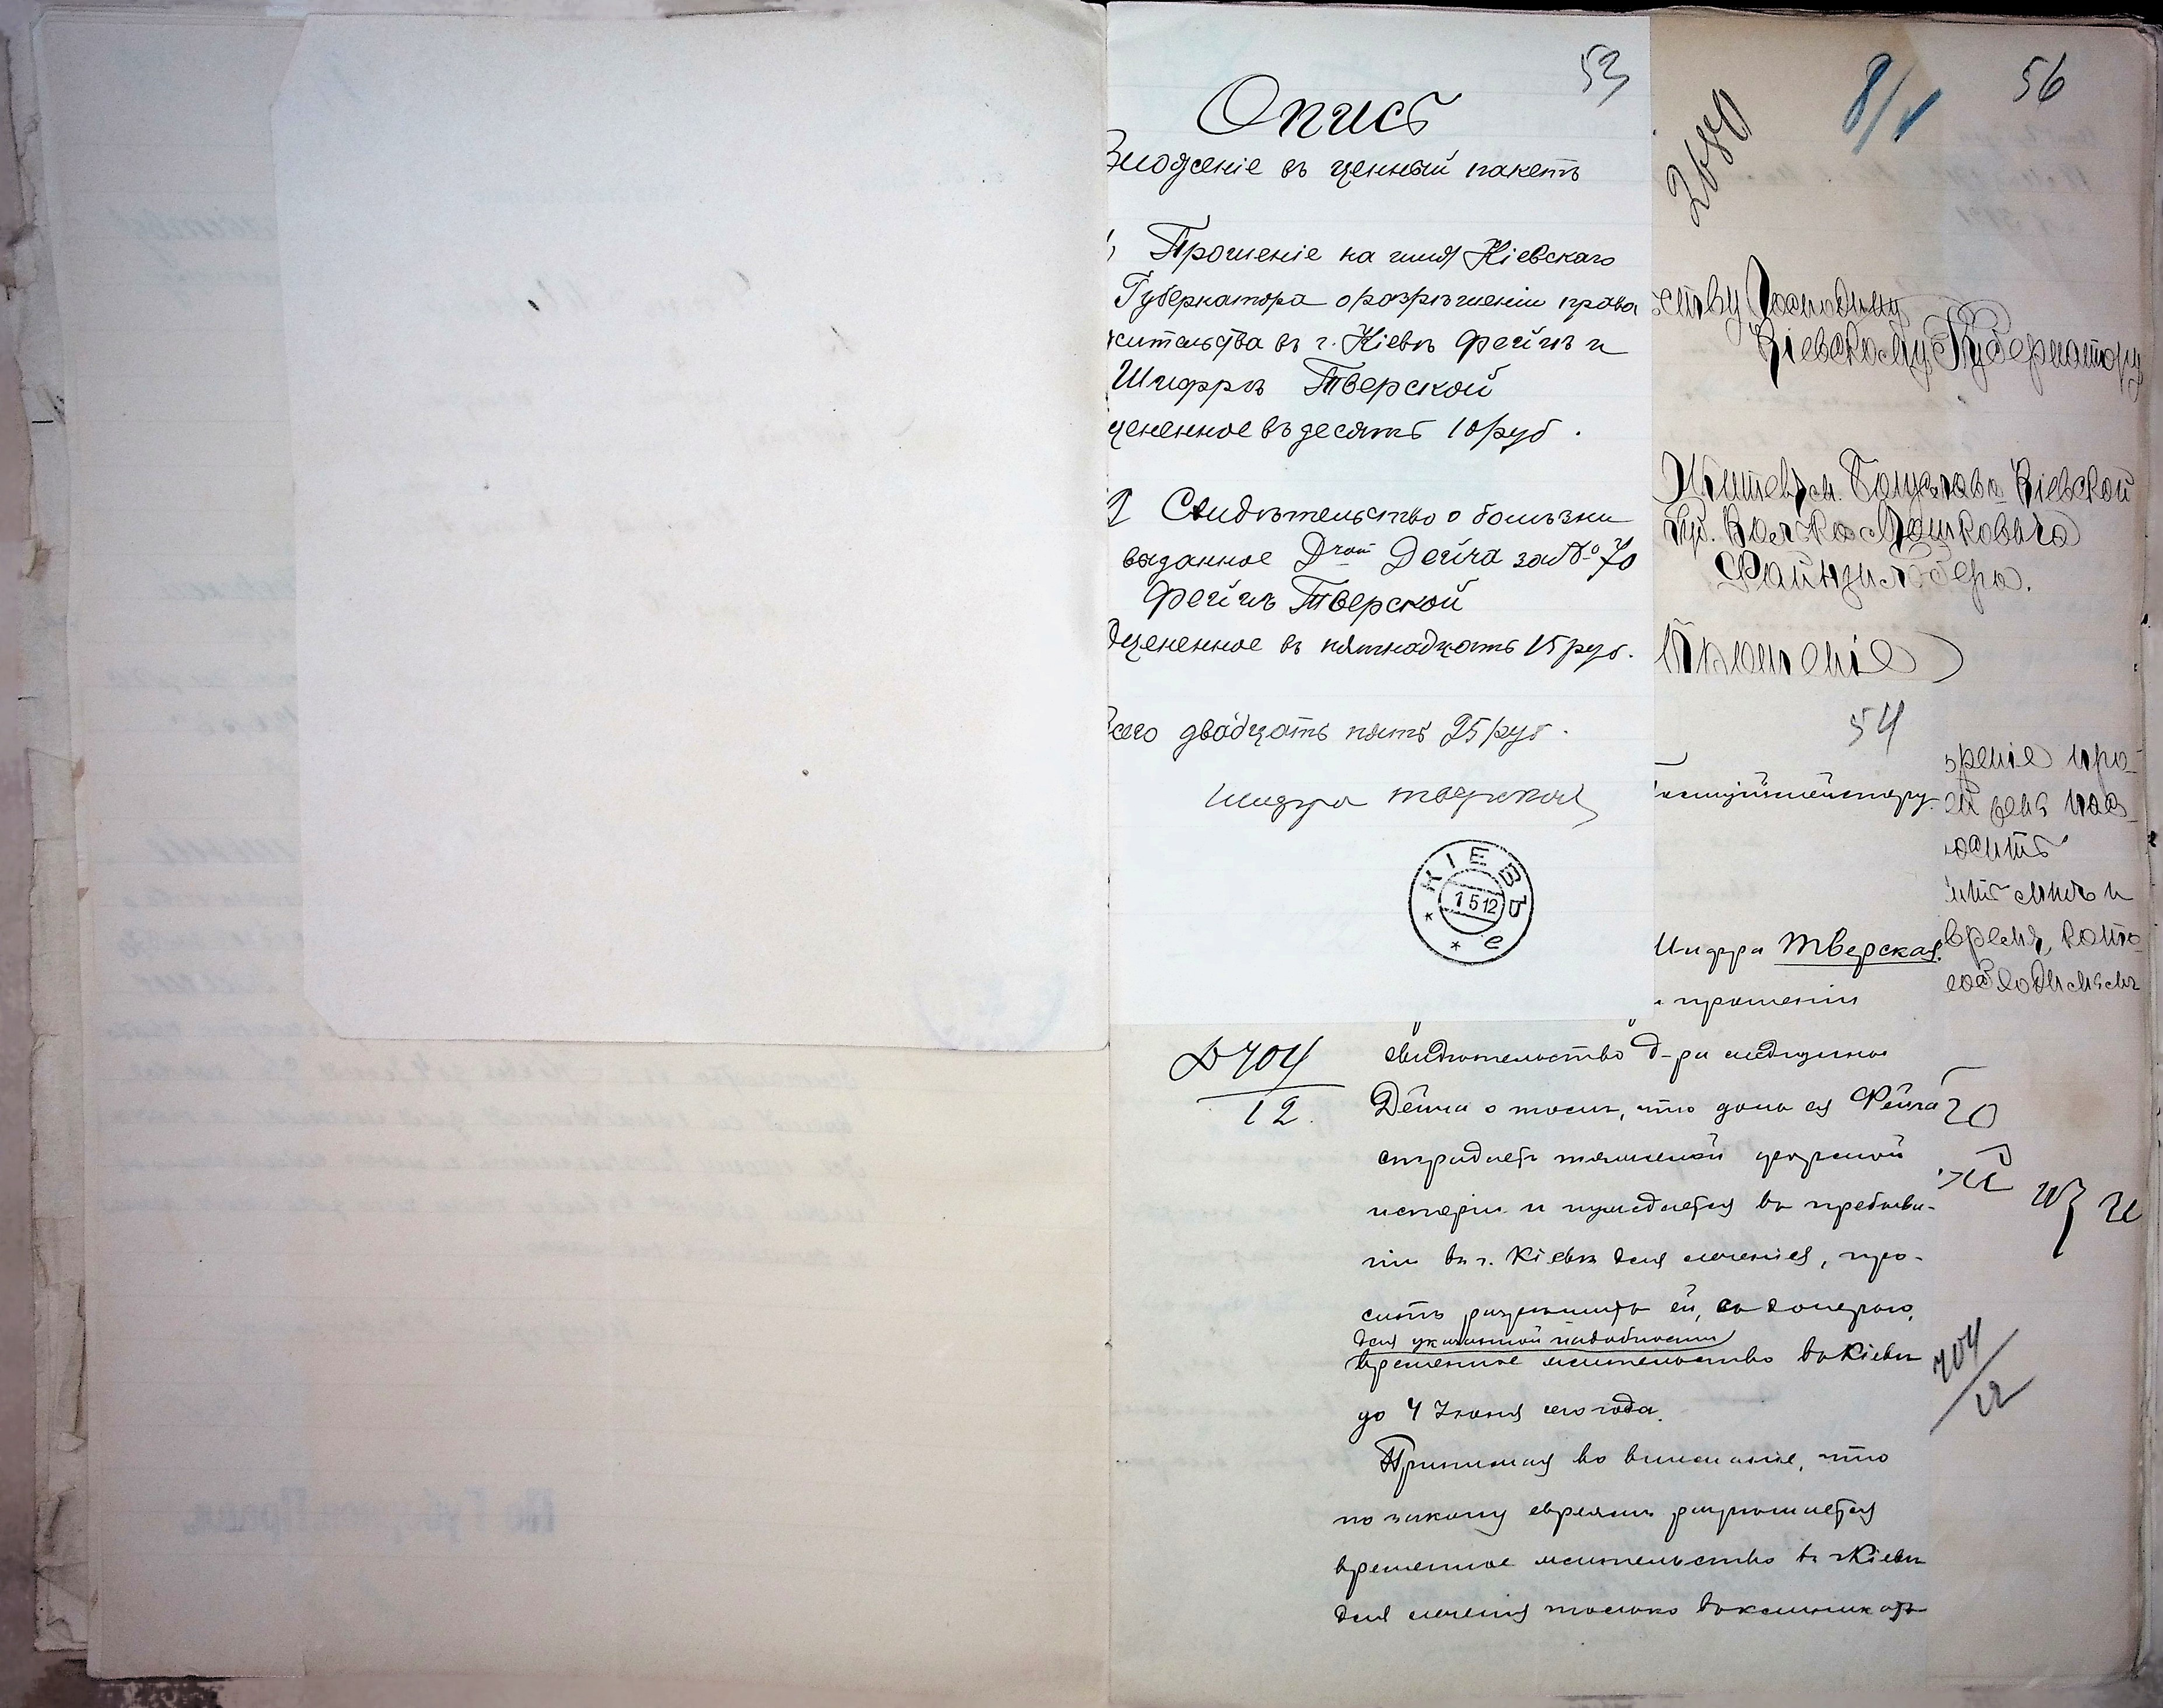 53
Опись
Вложеніе въ ценный пакетъ
Прошеніе на имя Кіевскаго
Губернатора о разрѣшеніи права
жительства въ г. Кіевѣ Фейгѣ и
Шифрѣ Тверской
цененное въ десять 10 руб.
2 Свидѣтельство о болѣзни
выданное Д-ром Дейча за № 70
Фейгѣ Тверской
оцененное въ пятнадцать 15 руб.
Всего двадцать пять 25 руб.
Шифра Тверская
КІЕВЪ
1 5 12
е
2680
8/V
56
ству Господину
Кіевскому Губернатору
Жителя м. Богуслава Кіевской
Губ. Волька Мошковича
Файнзильбера.
Прошеніе
54
лиціймейстеру.
Шифра Тверская,
прошеніи
зреніе про-
время, кото-
необходимымъ
704
12
свидѣтельство д-ра медицины
Дейча о томъ, что дочь ея Фейга
страдаетъ тяжелой формой
истеріи и нуждается въ пребыва-
ніи въ г. Кіевѣ для леченія, про-
ситъ разрѣшить ей, съ дочерью,
для указанной надобности
временное жительство въ Кіевѣ
до 4 Іюня сего года.
Принимая во вниманіе, что
по закону евреямъ разрѣшается
временное жительство въ г. Кіевѣ
для леченія только въ клиникахъ
704
12